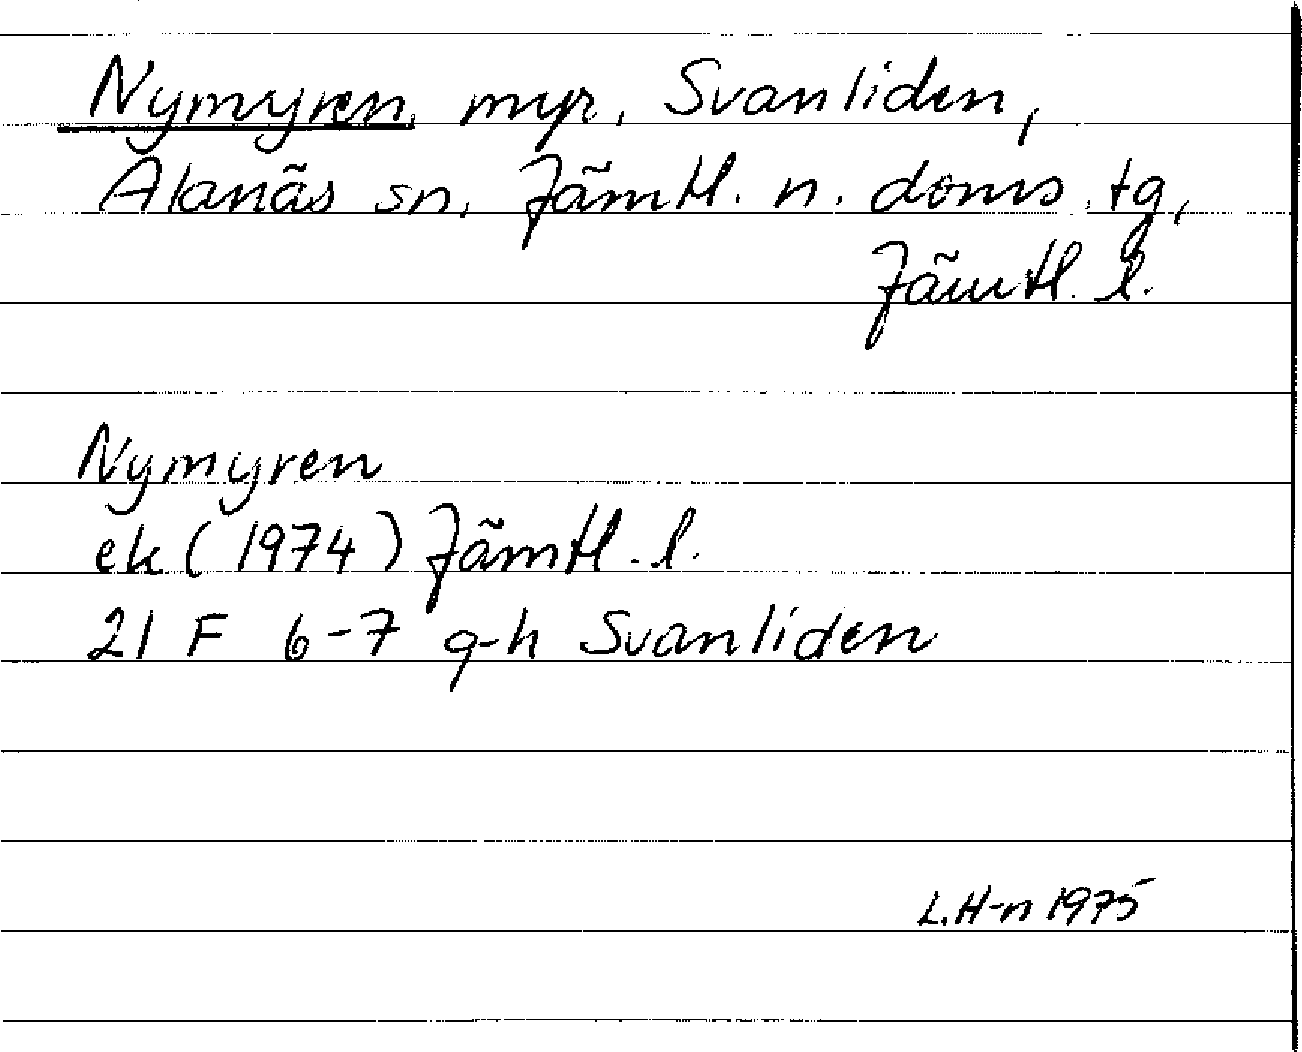 Nymyren, myr, Svanliden,
Alanäs sn, Jämtl. n. doms.tg,
Jämtl. l.
Nymyren
ek (1974) Jämtl. l.
21 F 6-7 g-h Svanliden
L.H-n 1975